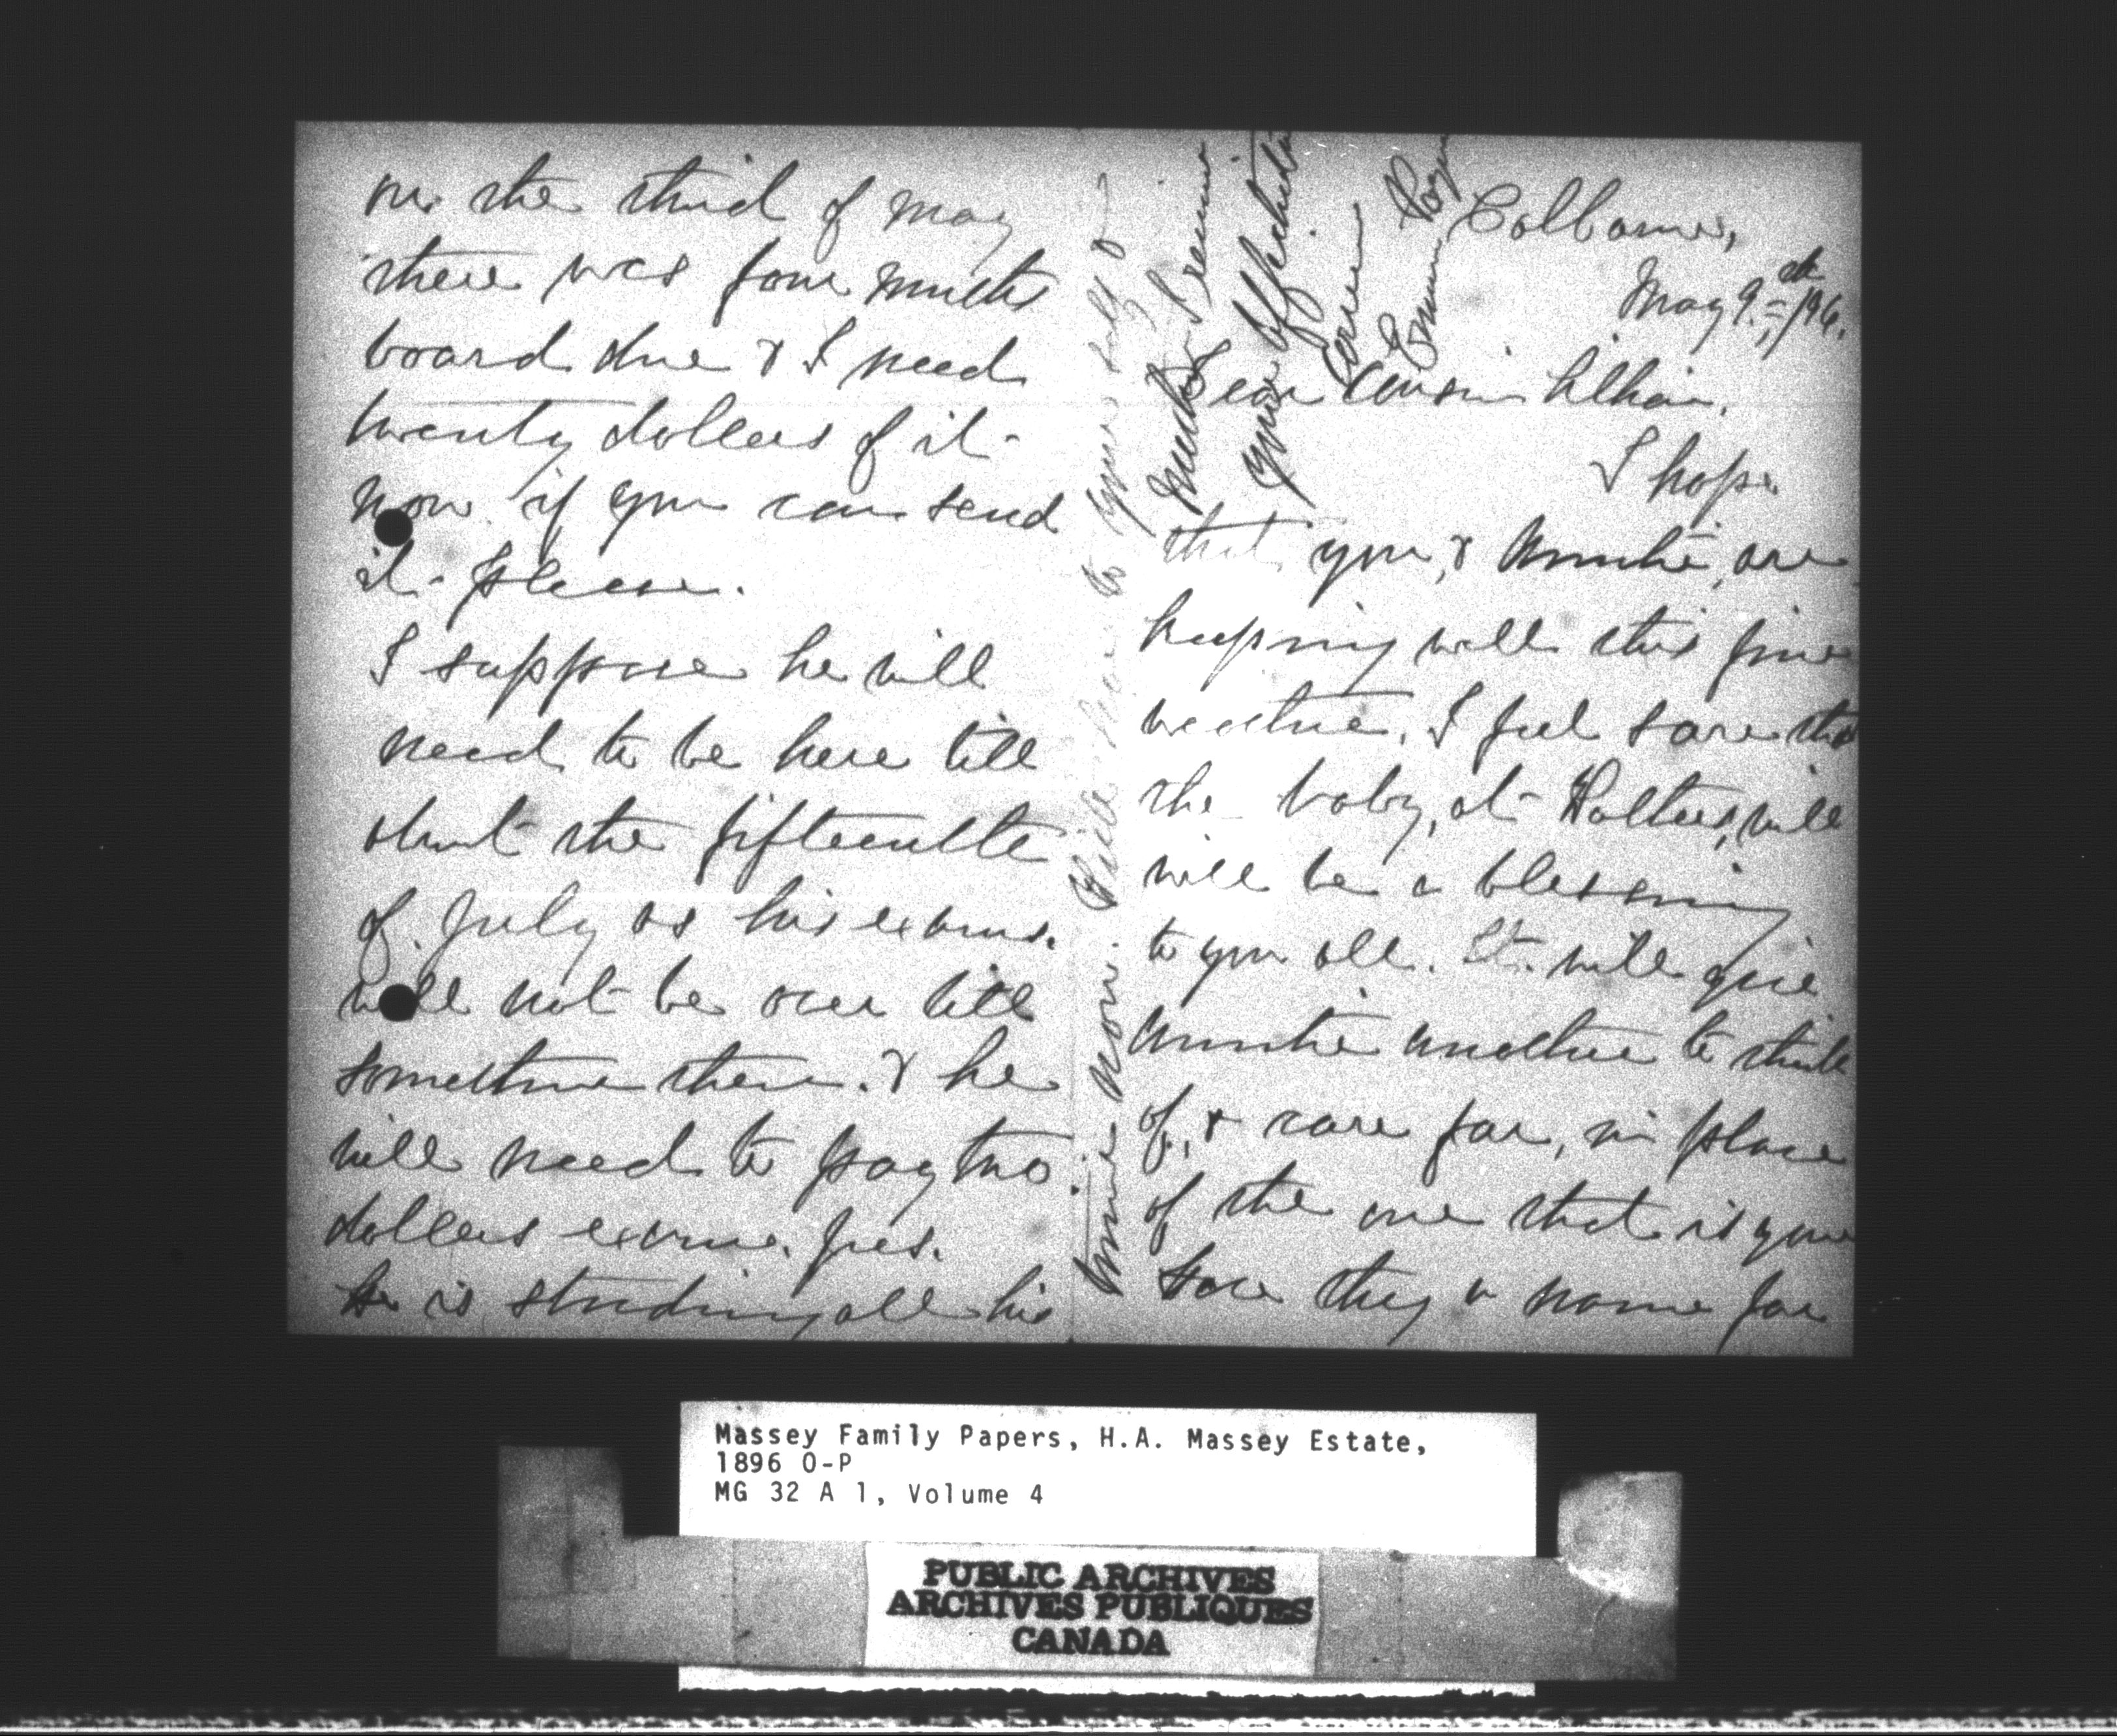 on the third of may
there was four months
board due & I need
twenty dollars of it
now if you can send
it please.
I suppose he will
need to be here till
about the fifteenth
of July as his exams.
will not be over till
sometime then. & he
will need to pay two
dollars exam. fees.
he is studing all his
time now. With love to your self &
mother I remain
Your Affectionate
Cousin
Emma
Colborne,
May 9th /96.
Dear Cousin Lillian,
I hope
that you, & Auntie, are
keeping well this fine
weather, I feel sure that
the baby, at Walters, will
will be a blessing
to you all. It will give
Auntie another to think
of, & care for, in place
of the one that is gone
have they a name for
Massey Family Papers, H.A. Massey Estate,
1896 O-P
MG 32 A 1, Volume 4
PUBLIC ARCHIVES
ARCHIVES PUBLIQUES
CANADA